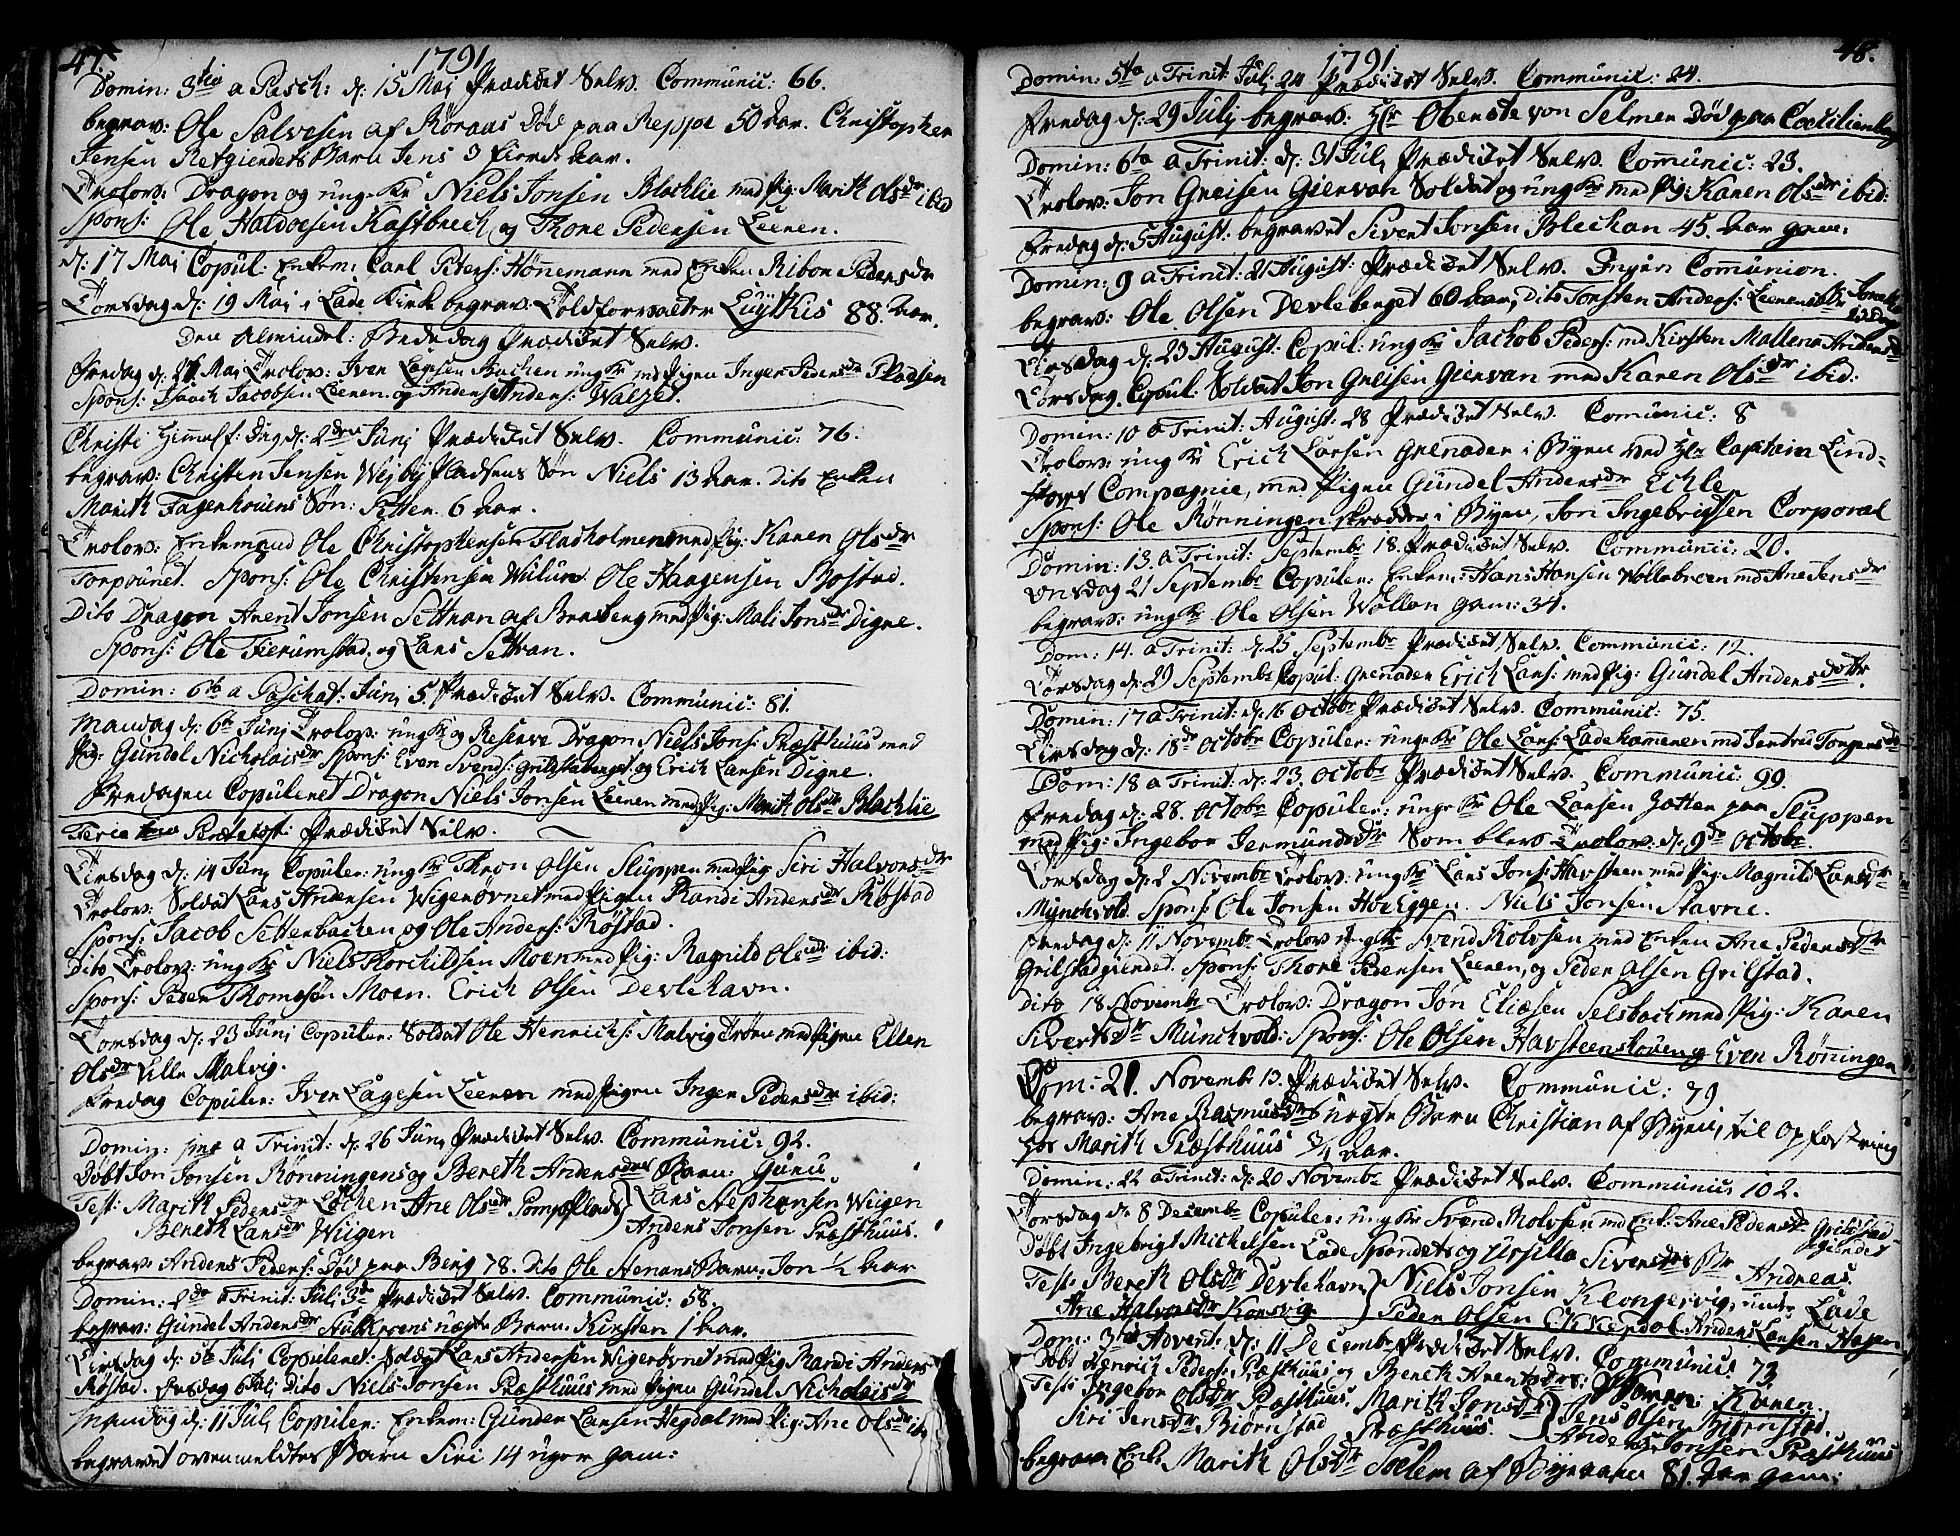 47.
1791
Domin: 3tia a Pasch: d: 15 Maj Prædiket Selv. Communic: 66.
begrav: Ole Salvesen af Røraas Død paa Reppe 50 Aar. Christopher
Jensen Retgierdets Barn Jens 3 fierd: Aar.
Trolov: Dragon og ung Kr Niels Jonsen Blachlie med Pig: Marith Olsdr ibid
Spons: Ole Haldorsen Kastbrech og Thore Pedersen Leeren.
d: 17 Maj Copul: Enkem: Carl Peters: Hønnemann med Enken Pedersdr
Torsdag d: 19 Maj i Lade Kirke begrav: Toldforvalter 88. Aar.
Den Almindel: Bededag Prædiket Selv.
Fredag d: Maj Trolov: Iver Larsen Bachen ung Kr md Pigen Inger Pedersdr
Spons: Jacobsen Leeren og Anders Anders:
Christi Himmelf: Dag d: 2den Junj Prædiket Selv. Communic: 76.
begrav: Christen Jensen Pladsens Søn Niels 13 Aar. Dito Enken
Marith Fagerhouns Søn: Petter 6 Aar.
Trolov: Enkemand Ole Christophersen Fladholmen med Pig: Karen Olsdr
Torpounet. Spons: Ole Christensen Ole Haagensen Rostad.
Dito Dragon Arent Jonsen Settran af med Pig: Mali Jonsdr Digre.
Spons: Ole Fierumstad og Lars Settran.
Domin: 6ta a Paschat: Junj 5. Prædiket Selv. Communic: 81.
Mandag d: 6te Junj Trolov: ung Kr og Reserve Dragon Niels Jons: Præsthuus med
Pig: Gundel Nicholaisdr Spons: Even Svends: Grilstaberget og Erich Larsen Digre.
Fredagen Copuleret Dragon Niels Jonsen Leeren med Pig: Marit Olsdr Blachlie
Feria Pentecost: Prædiket Selv.
Tirsdag d: 14 Junj Copuler: ung Kr Thron Olsen Sluppen med Pig: Siri Halvorsdr
Trolov: Soldat Lars Andersen Wigerøvnet med Pigen Randi Andersdr Røstad
Spons: Jacob Setterbachen og Ole Anders: Røstad.
Dito Trolov: ung Kr Niels Thorchildsen Moen med Pig: Ragnild Olsdr ibid:
Spons: Peder Thomesøn Moen. Erich Olsen Devlehavn.
Torsdag d: 23 Junj Copuler: Soldat Ole Henrichs: Malvig med Pigen Ellen
Olsdr Lille Malvig.
Fredag Copuler: Iver Leeren med Pigen Inger Pedersdr ibid:
Domin: a Trinit: d: 26 Junj Prædiket Selv. Communic: 92.
Døbt Jon Jonsen Rønningens og Bereth Andersdrs Barn: Guru
Test: Marith Pedersdr Løchen Ane Olsdr } Lars Stephansen Wiigen
Bereth Larsdr Wiigen } Anders Jonsen Præsthuus.
begrav: Anders Peders: Død paa Berg 78. Dito Ole Barn: Jon ½ Aar
Domin: 2da a Trinit: Julj 3de Prædiket Selv. Communic: 58.
begrav: Gundel Andersdr Barn. Kirsten 1 Aar.
Tirsdag d: 5te Julj Copuleret: Soldat Lars Andersen Wigerøvnet med Pig Randi Anders
Røstad. Dito Niels Jonsen Præsthuus med Pigen Gundel Nicholaisdr
Mandag d: 11 Julj Copuler: Enkem: Gunder Larsen Hegdal med Pig: Ane Olsdr
begravet ovenmeldtes Barn Siri 14 uger gam:
48.
1791
Domin: 5ta a Trinit: Julj 24 Prædiket Selv. Communic: 24.
Fredag d: 29 Julj begrav: Hr Oberste von Selmer Død paa Cæcilienberg
Domin: 6ta a Trinit: d: 31 Julj Prædiket Selv. Communic: 23.
Trolov: Jon Greisen Giervan Soldat og ung Kr med Pig: Karen Olsdr ibid:
Fredag d: 5 August: begravet Sivert Jonsen Blechan 45. Aar gam:
Domin: 9 a Trinit: 21 August: Prædiket Selv. Ingen Communion.
begrav: Ole Olsen Devleberget 60 Aar, Dito Torsten Anders: Leerens
Tirsdag d: 23 August: Copul: ung Kr Jachob Peders: md Kirsten Mallena
Torsdag Copul: Soldat Jon Greisen Giervan med Karen Olsdr ibid:
Domin: 10 a Trinit: August: 28 Prædiket Selv. Comunic: 8
Trolov: ung Kr Erich Larsen Grenader i Byen ved Hr Captain Lind-
Compagnie, med Pigen Gundel Andersdr Eckle
Spons: Ole Rønningen skrædder i Byen, Jon Ingebrigtsen Corporal
Domin: 13. a Trinit: Septembr 18. Prædiket Selv. Communic: 20.
Onsdag 21 Septembr Copuler: Enkem: Hans Hansen md Ane Jensdr
begrav: ung Kr Ole Olsen Wollan gam: 34.
Dom: 14. a Trinit: d: 25 Septembr Prædiket Selv. Communic: 12.
Torsdag d: 29 Septembr Copul: Grenader Erich Lars: med Pig: Gundel Andersdotr.
Domin: 17 a Trinit: d: 16 Octobr Prædiket Selv. Communic: 75.
Tirsdag d: 18de Octobr Copuler: ung Kr Ole Lars: Ladehammeren md Jertru
Dom: 18 a Trinit: d: 23. Octobr Prædiket Selv. Communic: 99.
Fredag d: 28. Octobr Copuler: ung Kr Ole Larsen paa Sluppen
med Pig: Ingebor Jermundsdr Som blev Trolov: d: 9de Octobr.
Torsdag d: Novembr Trolov: ung Kr Lars Jons: Havsteen med Pig: Magnild Larsdr
Münchvold. Spons: Ole Jonsen Høeggen. Niels Jonsen Stavne.
Fredag d: 11 Novembr Trolov: ung Kr Svend Rolvsen med Enken Ane Pedersdr
Grilstadgierdet. Spons: Thore Pedersen Leeren, og Peder Olsen Grilstad.
Dito 18 Novembr Trolov: Dragon Jon Eliæsen Selsbach med Pig: Karen
Sivertsdr Münchvold: Spons: Ole Olsen Havsteen og Even Rønningen
Dom: 21. Novembr 13. Prædiket Selv. Communic: 79
begrav: Ane Rasmusdr uægte Barn Christian af Byen, til Opfostring
hos Marith Præsthuus ¾ Aar.
Domin: 22 a Trinit: d: 20 Novembr Prædiket Selv. Communic: 102.
Torsdag d: 8 Decembr Copuler: ung Kr Svend Rolvsen md Enk: Ane Pedersdr Grilstad-
gierdet
Døbt Ingebrigt Michelsen Lade og Ursilla Siversdrs Br Andreas.
Test: Bereth Olsdr Devlehavn } Niels Jonsen under Lade
Ane Halvorsdr } Peder Olsen Anders Larsen
Dom: 3tia Advent: d: 11 Decembr Prædiket Selv. Communic: 73
Døbt Henrich Peders: Præsthuus og Bereth Arentsdrs: Karen.
Test: Ingebor Olsdr Præsthuus, Marith Jonsdr } Jens Olsen Bjørnstad.
Siri Jensdr Bjørnstad Præsthuus. } Anders Jonsen Præsthuus
begrav: Enke Marith Olsdr af Byeaasen 81. Aar gam: